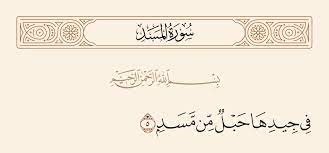 سُورَةُ المَسَدِ
بِسْمِ اللَّهِ الرَّحْمَٰنِ الرَّحِيمِ
فِى جِيدِهَا حَبْلٌ مِّن مَّسَدٍ ۝٥